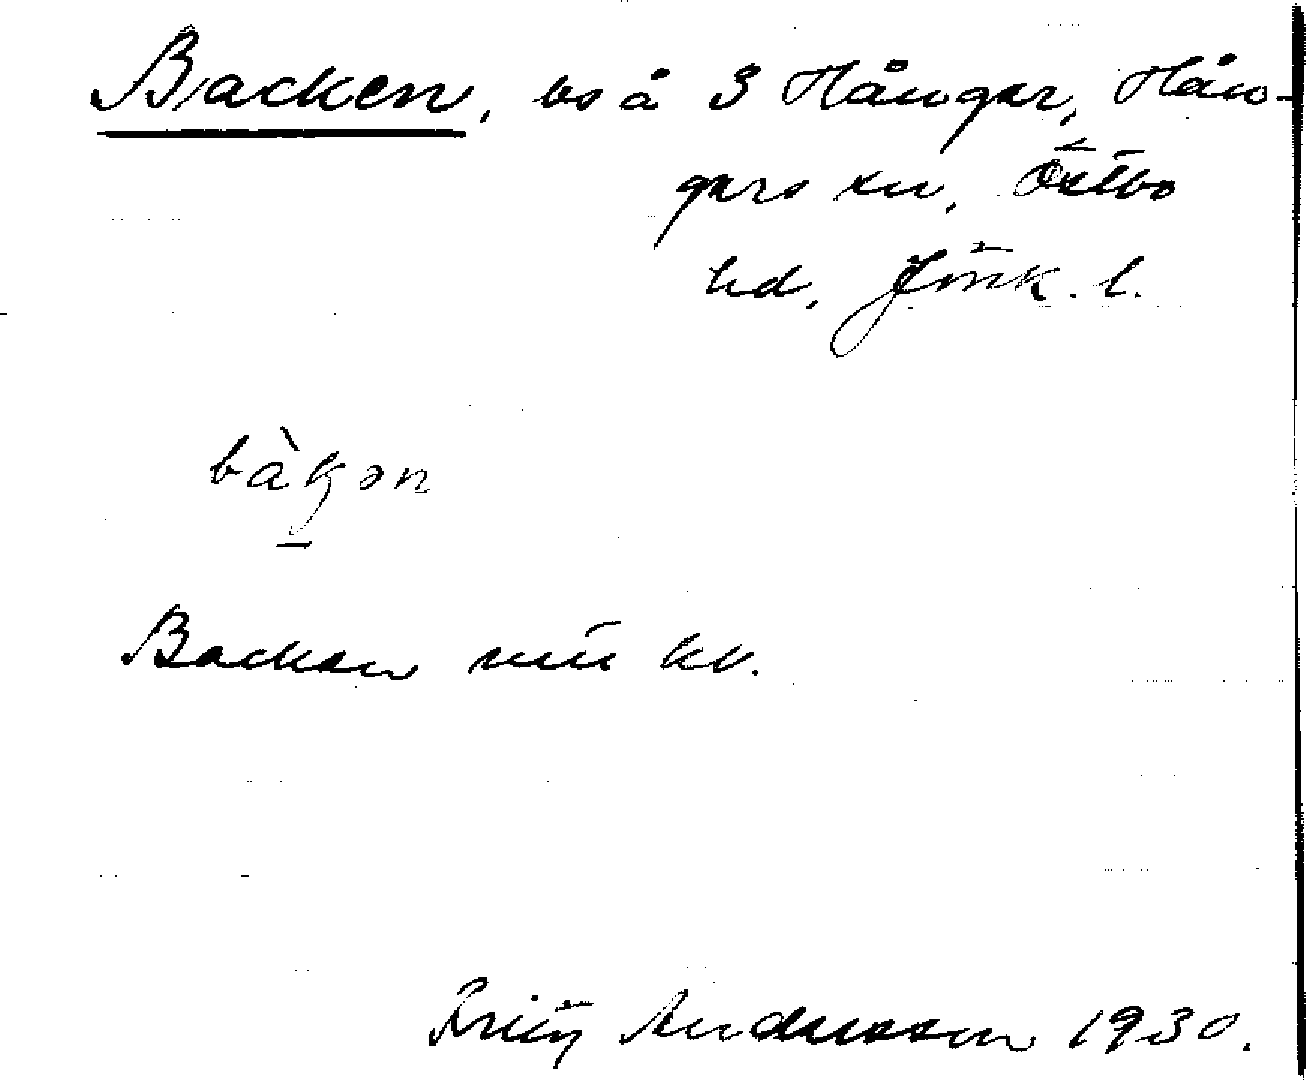 Backen, bs å 3 Hångar, Hån-
gers sn, Östbo
hd, Jönk. l.
bàkən
Backen mtl kv.
Andersson 1930.